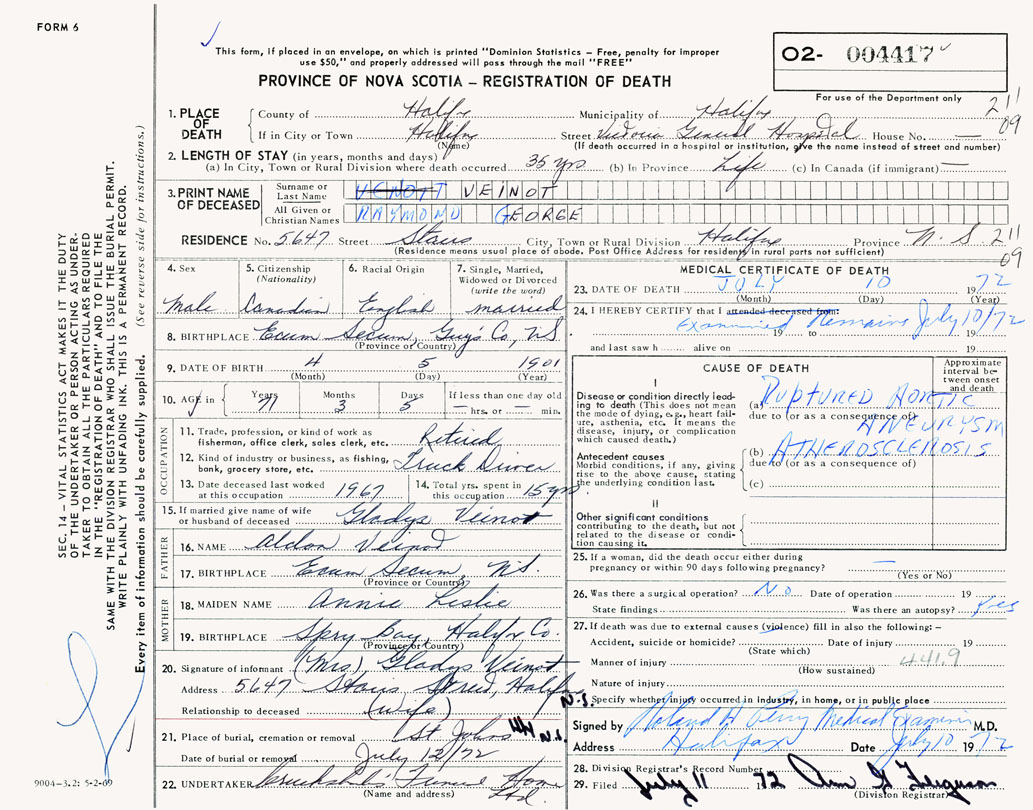 FORM 6
This form, if placed in an envelope, on which is printed "Dominion Statistics – Free, penalty for improper
use $50," and properly addressed will pass through the mail "FREE"
PROVINCE OF NOVA SCOTIA – REGISTRATION OF DEATH
O2- 004417
For use of the Department only
211
09
1. PLACE OF DEATH
County of Halifx Municipality of Halifx
If in City or Town Halifx Street Victoria General Hospital House No. —
(Name) (If death occurred in a hospital or institution, give the name instead of street and number)
2. LENGTH OF STAY (in years, months and days)
(a) In City, Town or Rural Division where death occurred 35 yrs (b) In Province Life (c) In Canada (if immigrant) —
3. PRINT NAME OF DECEASED
Surname or Last Name VEINOT
All Given or Christian Names RAYMOND GEORGE
RESIDENCE No. 5647 Street Stairs City, Town or Rural Division Halifax Province N.S 211
(Residence means usual place of abode. Post Office Address for residents in rural parts not sufficient) 09
4. Sex
Male
5. Citizenship
(Nationality)
Canadian
6. Racial Origin
English
7. Single, Married,
Widowed or Divorced
(write the word)
married
8. BIRTHPLACE Ecum Secum, Guys Co, N.S.
(Province or Country)
9. DATE OF BIRTH 4 5 1901
(Month) (Day) (Year)
10. AGE in Years Months Days If less than one day old
71 3 5 — hrs. or — min.
OCCUPATION
11. Trade, profession, or kind of work as
fisherman, office clerk, sales clerk, etc. Retired
12. Kind of industry or business, as fishing,
bank, grocery store, etc. Truck Driver
13. Date deceased last worked
at this occupation 1967
14. Total yrs. spent in
this occupation 15 yrs.
15. If married give name of wife
or husband of deceased Gladys Veinot
FATHER
16. NAME Aldon Veinot
17. BIRTHPLACE Ecum Secum, N.S.
(Province or Country)
MOTHER
18. MAIDEN NAME Annie Leslie
19. BIRTHPLACE Spry Bay, Halifx Co.
(Province or Country)
20. Signature of informant (Mrs) Gladys Veinot
Address 5647 Stairs Street, Halifax N.S.
Relationship to deceased (wife)
21. Place of burial, cremation or removal St Johns N.S.
Date of burial or removal July 12/72
22. UNDERTAKER Cruikshank's Funeral Home Ltd.
(Name and address)
MEDICAL CERTIFICATE OF DEATH
23. DATE OF DEATH JULY 10 1972
(Month) (Day) (Year)
24. I HEREBY CERTIFY that I attended deceased from:
Examined Remains July 10/72
19 to 19
and last saw h alive on 19
CAUSE OF DEATH
Approximate
interval be-
tween onset
and death
I
Disease or condition directly lead-
ing to death (This does not mean
the mode of dying, e.g., heart fail-
ure, asthenia, etc. It means the
disease, injury, or complication
which caused death.)
(a) RUPTURED AORTIC
due to (or as a consequence of)
ANEURYSM
Antecedent causes
Morbid conditions, if any, giving
rise to the above cause, stating
the underlying condition last.
(b) ATHEROSCLEROSIS
due to (or as a consequence of)
(c)
II
Other significant conditions
contributing to the death, but not
related to the disease or condi-
tion causing it.
25. If a woman, did the death occur either during
pregnancy or within 90 days following pregnancy? —
(Yes or No)
26. Was there a surgical operation? No Date of operation 19
State findings Was there an autopsy? Yes
27. If death was due to external causes (violence) fill in also the following: –
Accident, suicide or homicide? Date of injury 19
(State which)
Manner of injury 441.9
(How sustained)
Nature of injury
Specify whether injury occurred in industry, in home, or in public place
Signed by Roland H Perry Medical Examiner M.D.
Address Halifax Date July 10 1972
28. Division Registrar's Record Number
29. Filed July 11 1972 Ann G Ferguson
(Division Registrar)
SEC. 14 – VITAL STATISTICS ACT MAKES IT THE DUTY
OF THE UNDERTAKER OR PERSON ACTING AS UNDER-
TAKER TO OBTAIN ALL THE PARTICULARS REQUIRED
IN THE "REGISTRATION OF DEATH" AND TO FILE THE
SAME WITH THE DIVISION REGISTRAR WHO SHALL ISSUE THE BURIAL PERMIT.
WRITE PLAINLY WITH UNFADING INK. THIS IS A PERMANENT RECORD.
Every item of information should be carefully supplied. (See reverse side for instructions.)
9004-3.2: 5-2-69